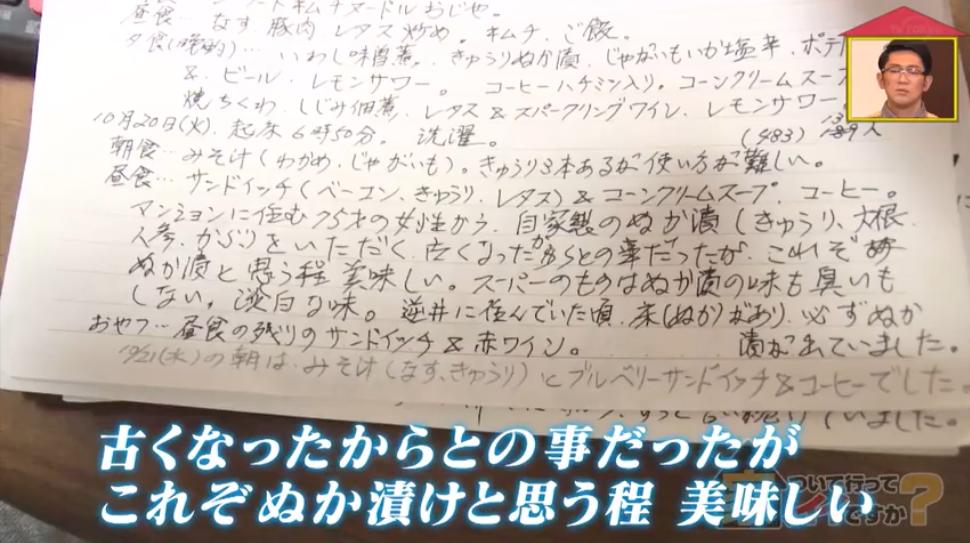 キムチヌードルおじや。
昼食… なす 豚肉 レタス 炒め。キムチ、ご飯。
夕食(晩酌)… いわし味噌煮、きゅうりぬか漬、じゃがいもいか塩辛、ポテ
&、ビール、レモンサワー。コーヒーハチミツ入り。コーンクリームスープ
焼ちくわ、しじみ佃煮、レタス&スパークリングワイン、レモンサワー。
10月20日(火)、起床6時50分。洗濯。(483)
朝食… みそ汁(わかめ、じゃがいも)。きゅうり3本あるが使い方が難しい。
昼食… サンドイッチ(ベーコン、きゅうり、レタス)&コーンクリームスープ、コーヒー。
マンションに住む75才の女性から、自家製のぬか漬(きゅうり、大根、
人参、かぶ)をいただく、古くなったからとの事だったが、これぞ
ぬか漬と思う程 美味しい。スーパーのものはぬか漬の味も臭いも
しない。淡白な味。逆井に住んでいた頃、床(ぬか)があり、必ずぬか
漬が出ていました。
おやつ… 昼食の残りのサンドイッチ&赤ワイン。
10/21(水)の朝は、みそ汁(なす、きゅうり)とブルベリーサンドイッチ&コーヒーでした。
いました。
古くなったからとの事だったが
これぞぬか漬けと思う程 美味しい
家、ついて行ってイイですか?
TV TOKYO